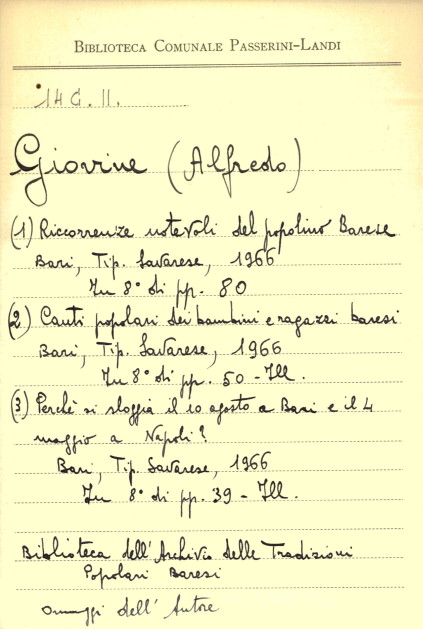 BIBLIOTECA COMUNALE PASSERINI-LANDI
14 G. II.
Giovine (Alfredo)
(1) Riccorrenze notevoli del popolino Barese
Bari, Tip. Savarese, 1966
In 8° di pp. 80
(2) Canti popolari dei bambini e ragazzi baresi
Bari, Tip. Savarese, 1966
In 8° di pp. 50 - Ill.
(3) Perchè si sloggia il 10 agosto a Bari e il 4
maggio a Napoli?
Bari, Tip. Savarese, 1966
In 8° di pp. 39 - Ill.
Biblioteca dell'Archivio delle Tradizioni
Popolari Baresi
Omaggi dell'Autore